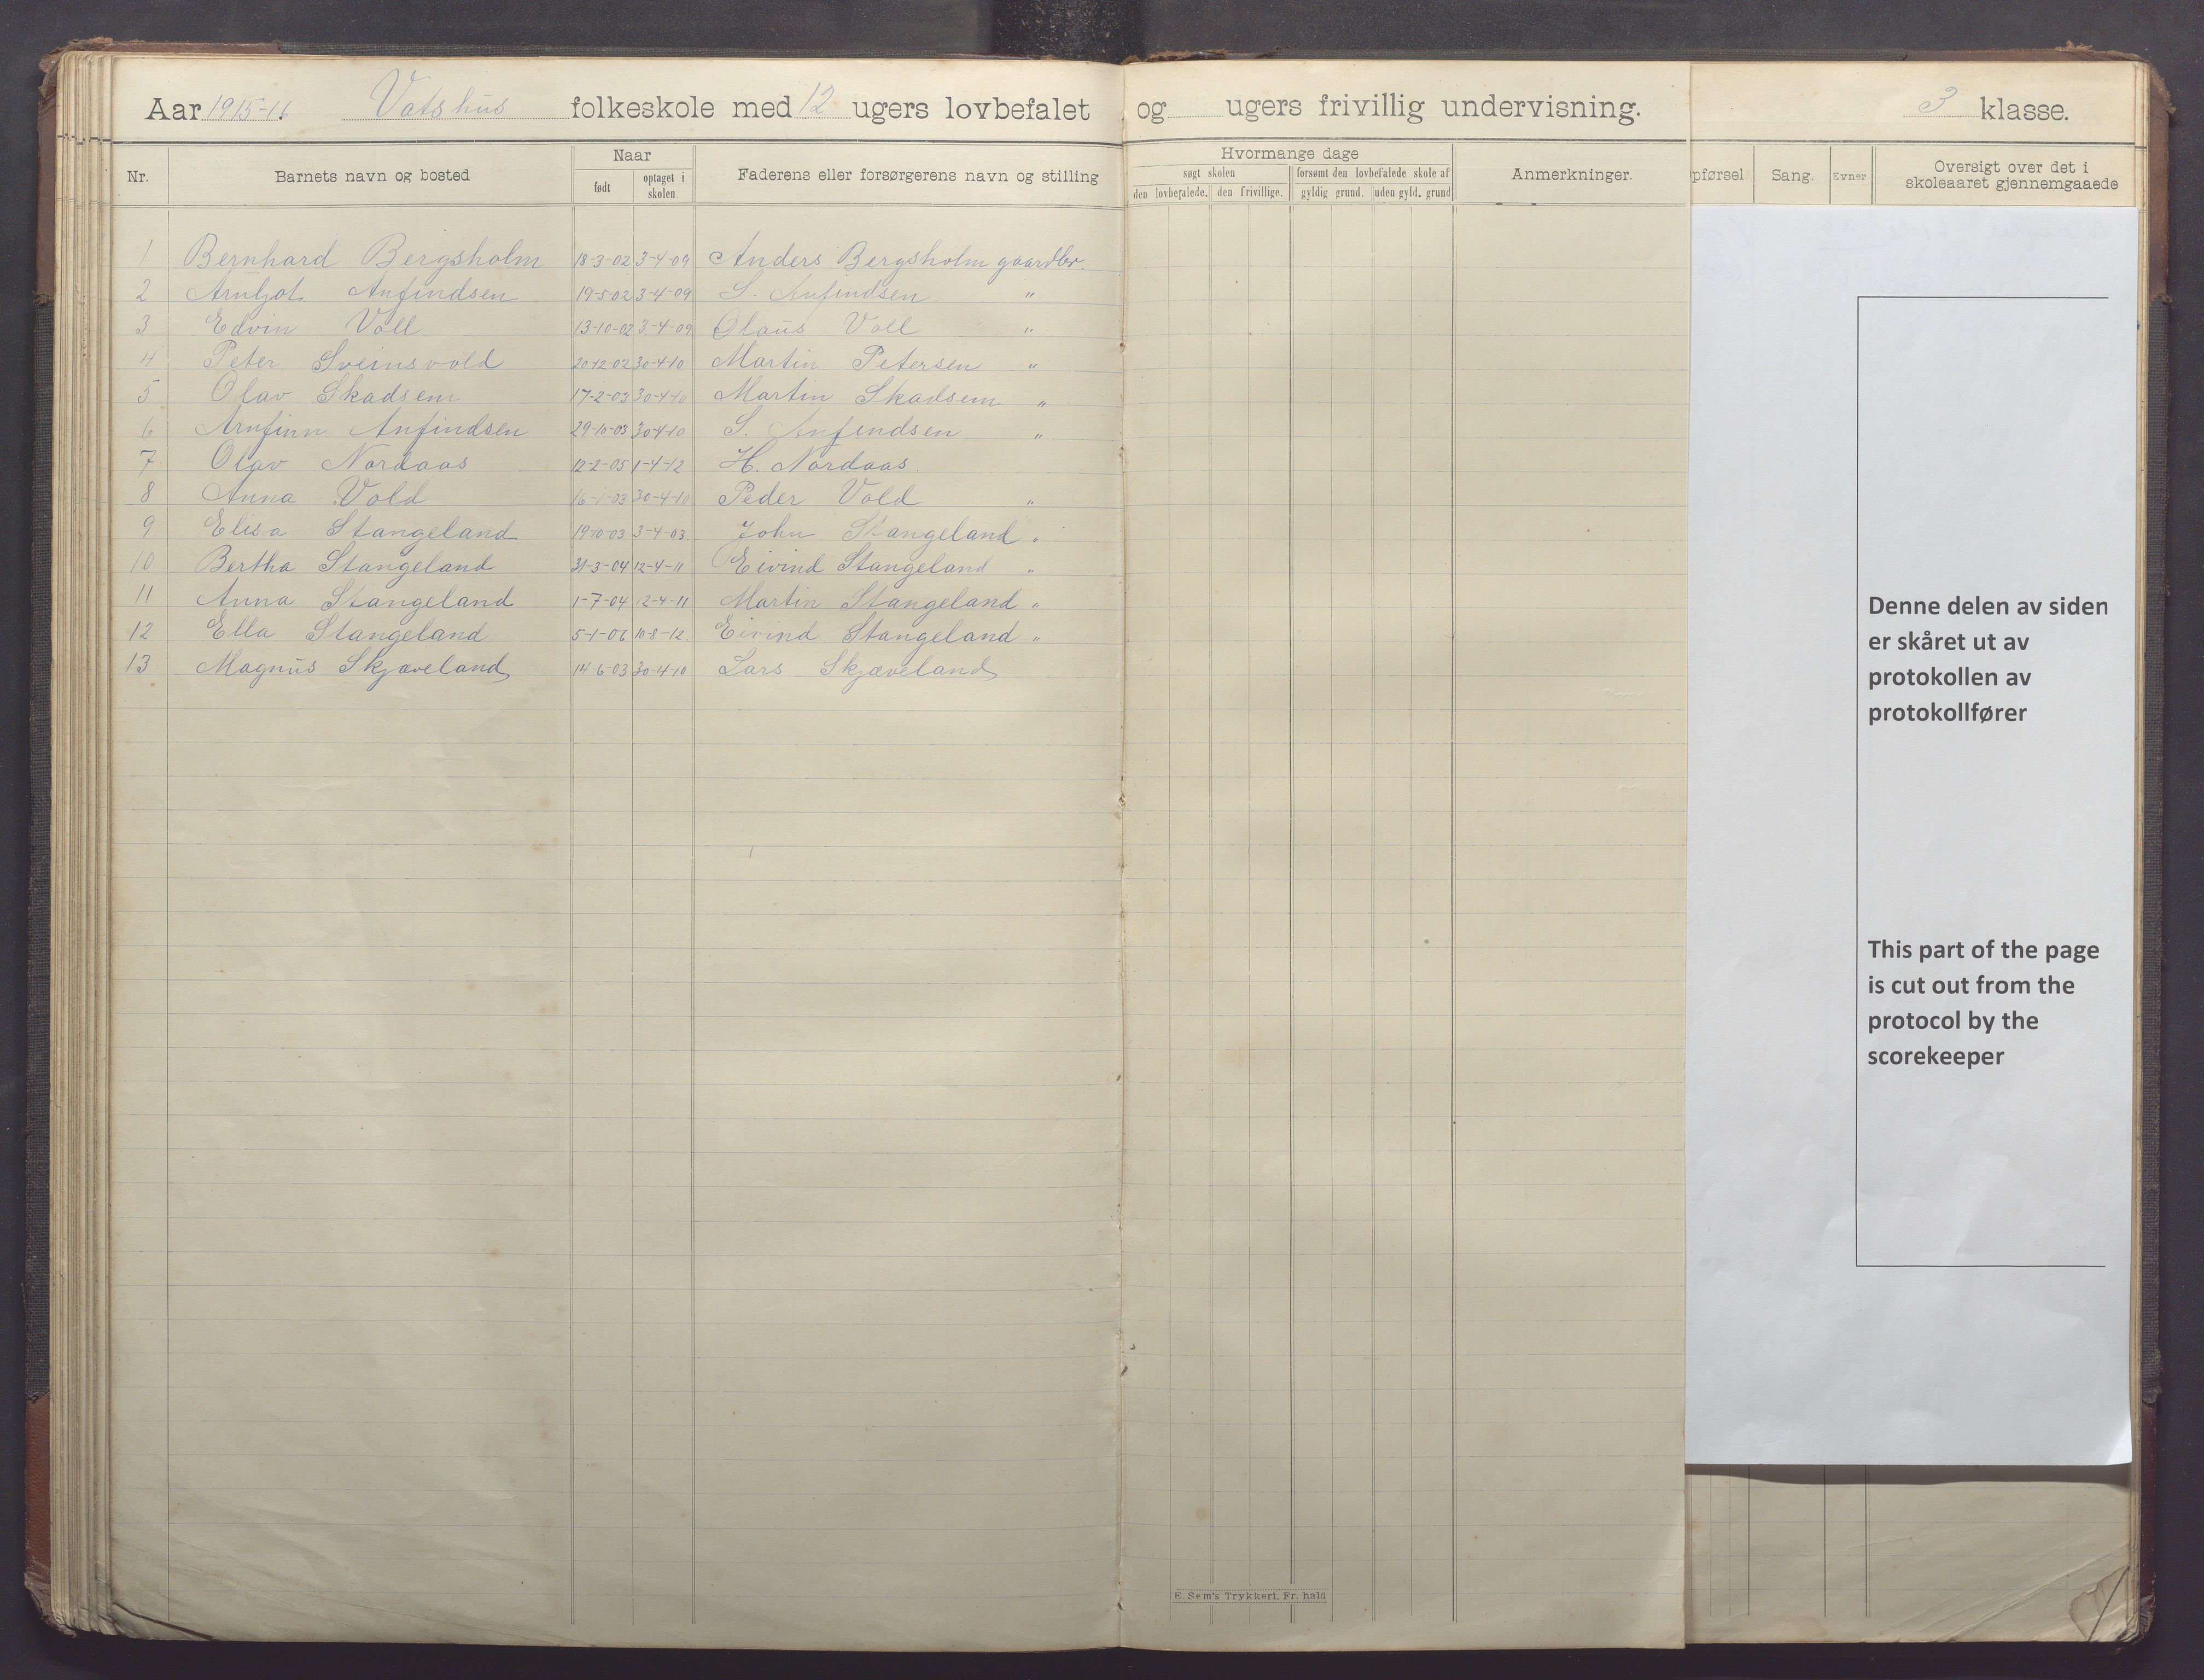 Aar 1915-16. Vatshus folkeskole med 12 ugers lovbefalet og ugers frivillig undervisning. 3 klasse.
Nr. Barnets navn og bosted Naar født optaget i skolen. Faderens eller forsørgerens navn og stilling
Hvormange dage søgt skolen den lovbefalede. den frivillige. forsømt den lovbefalede skole af gyldig grund. uden gyld. grund Anmerkninger.
pførsel. Sang. Evner Oversigt over det i skoleaaret gjennemgaaede
1 Bernhard Bergsholm 18-3-02 3-4-09 Anders Bergsholm gaardbr.
2 Arnljot Anfindsen 19-5-02 3-4-09 S. Anfindsen "
3 Edvin Voll 13-10-02 3-4-09 Olaus Voll "
4 Peter Sveinsvold 20-12-02 30-4-10 Martin Petersen "
5 Olav Skadsem 17-2-03 30-4-10 Martin Skadsem "
6 Arnfinn Anfindsen 29-10-03 30-4-10 S. Anfindsen "
7 Olav Nordaas 12-2-05 1-4-12 H. Nordaas
8 Anna Vold 16-1-03 30-4-10 Peder Vold "
9 Elisa Stangeland 19-10-03 3-4-03. John Stangeland "
10 Bertha Stangeland 31-3-04 12-4-11 Eivind Stangeland "
11 Anna Stangeland 1-7-04 12-4-11 Martin Stangeland "
12 Ella Stangeland 5-1-06 10-8-12. Eivind Stangeland "
13 Magnus Skjæveland 14-6-03 30-4-10 Lars Skjæveland
Denne delen av siden
er skåret ut av
protokollen av
protokollfører
This part of the page
is cut out from the
protocol by the
scorekeeper
E. Sem's Trykkeri, Fr. hald